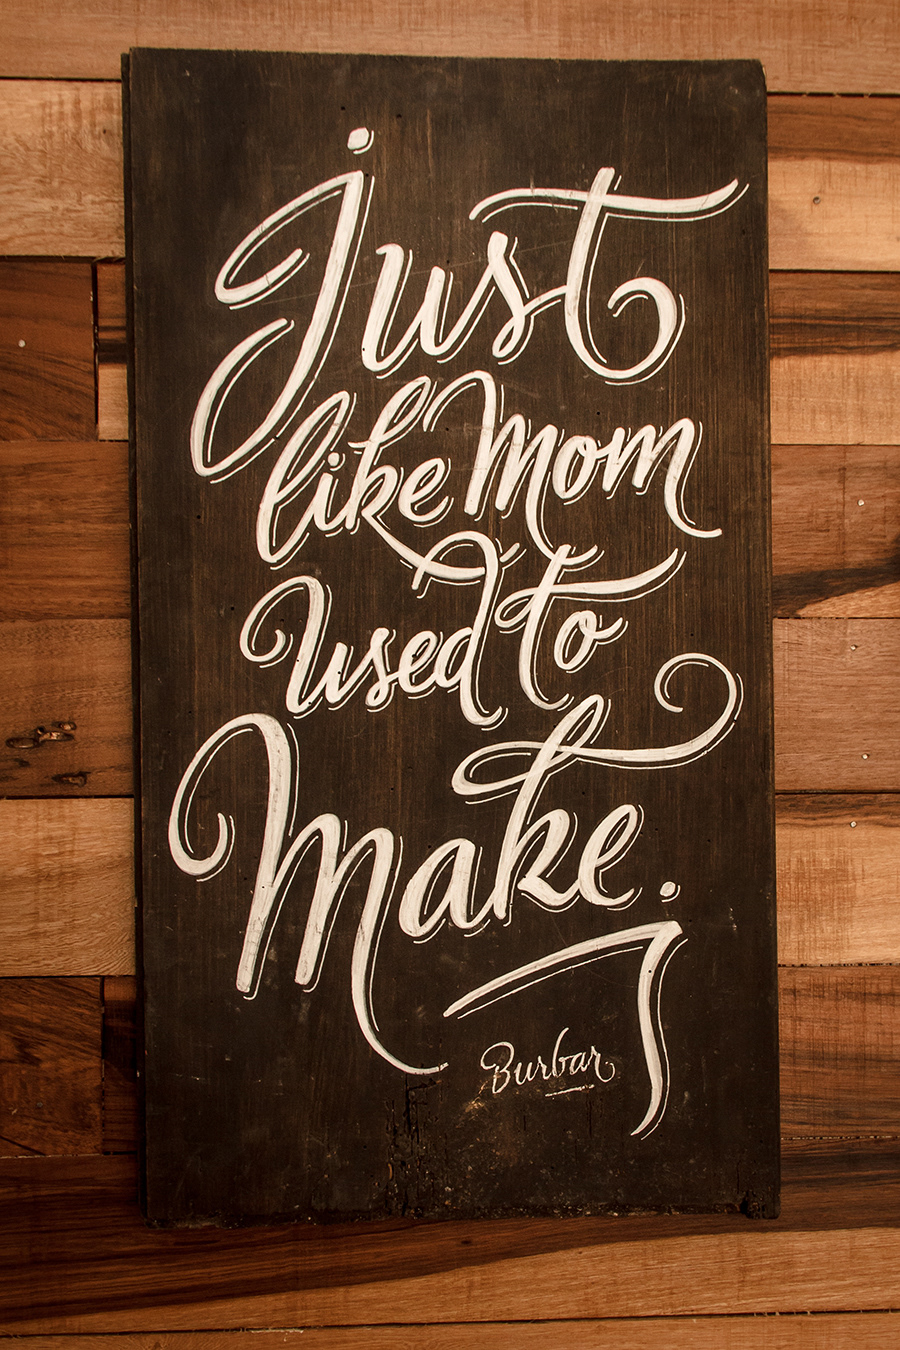 Just
like Mom
used to
Make.
Burbar